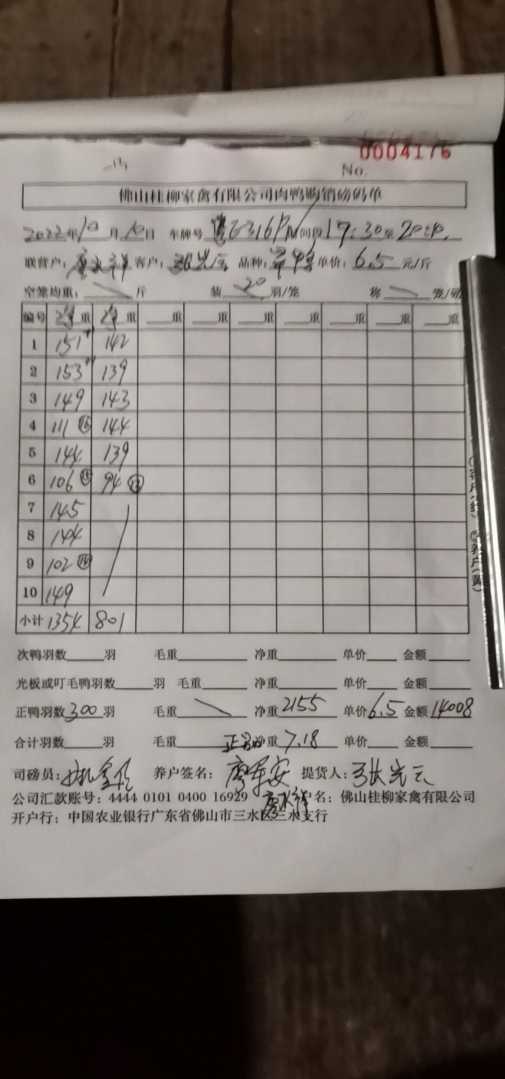 0004176
No.
佛山桂柳家禽有限公司肉鸭购销磅码单
2022年10月10日 车牌号 6316 时间段17:30至20:10
联营户: 客户: 品种: 单价:6.5元/斤
空笼均重: 斤 装20羽/笼 称 笼/磅
编号 净重 净重 重 重 重 重 重 重 重
1 151 142
2 153 139
3 149 143
4 111 ⑮ 144
5 144 139
6 106 ⑮ 94 ⑬
7 145
8 144
9 102 ⑭
10 149
小计 1354 801
次鸭羽数 羽 毛重 净重 单价 金额
光板或叮毛鸭羽数 羽 毛重 净重 单价 金额
正鸭羽数300羽 毛重 净重2155 单价6.5 金额14008
合计羽数 羽 毛重 重7.18 单价 金额
司磅员: 养户签名: 提货人:
公司汇款账号: 4444 0101 0400 16929 户名: 佛山桂柳家禽有限公司
开户行: 中国农业银行广东省佛山市三水区三水支行